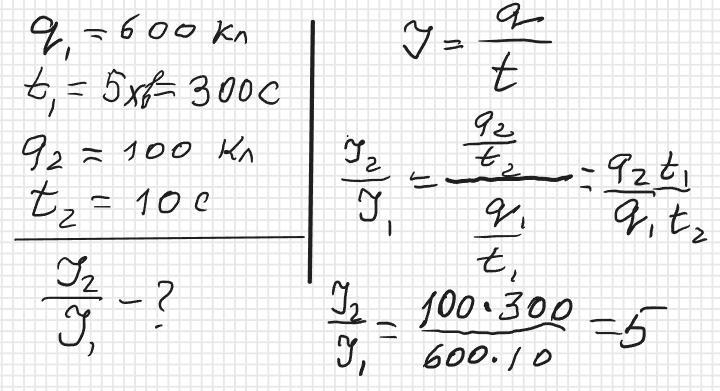 q₁ = 600 Кл
t₁ = 5хв = 300 с
q₂ = 100 Кл
t₂ = 10 с
J₂/J₁ - ?
J = q/t
J₂/J₁ = (q₂/t₂)/(q₁/t₁) = q₂t₁/q₁t₂
J₂/J₁ = 100·300/600·10 = 5